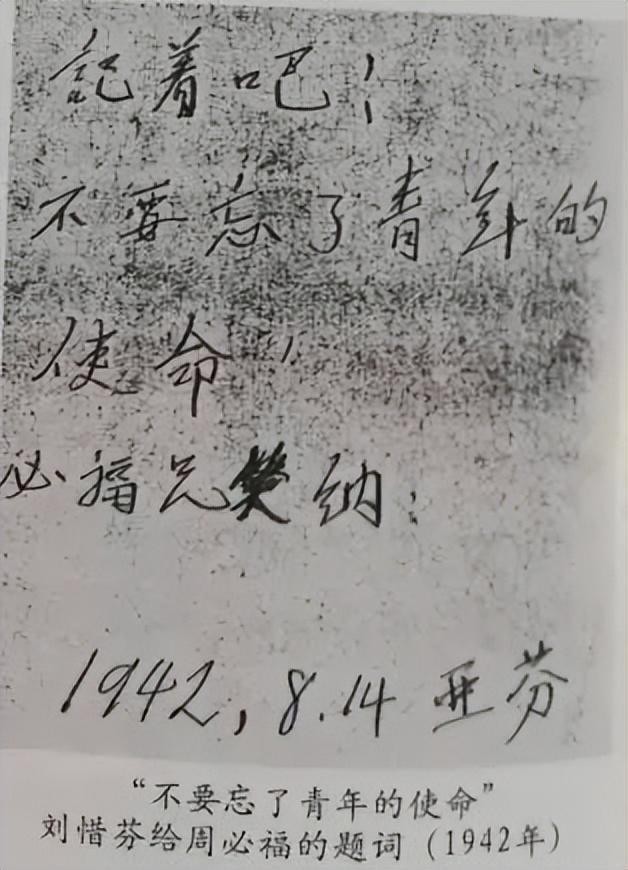 記着吧！
不要忘了青年的
使命"
必福兄笑纳：
1942，8.14 亜芬
“不要忘了青年的使命”
刘惜芬给周必福的题词（1942年）